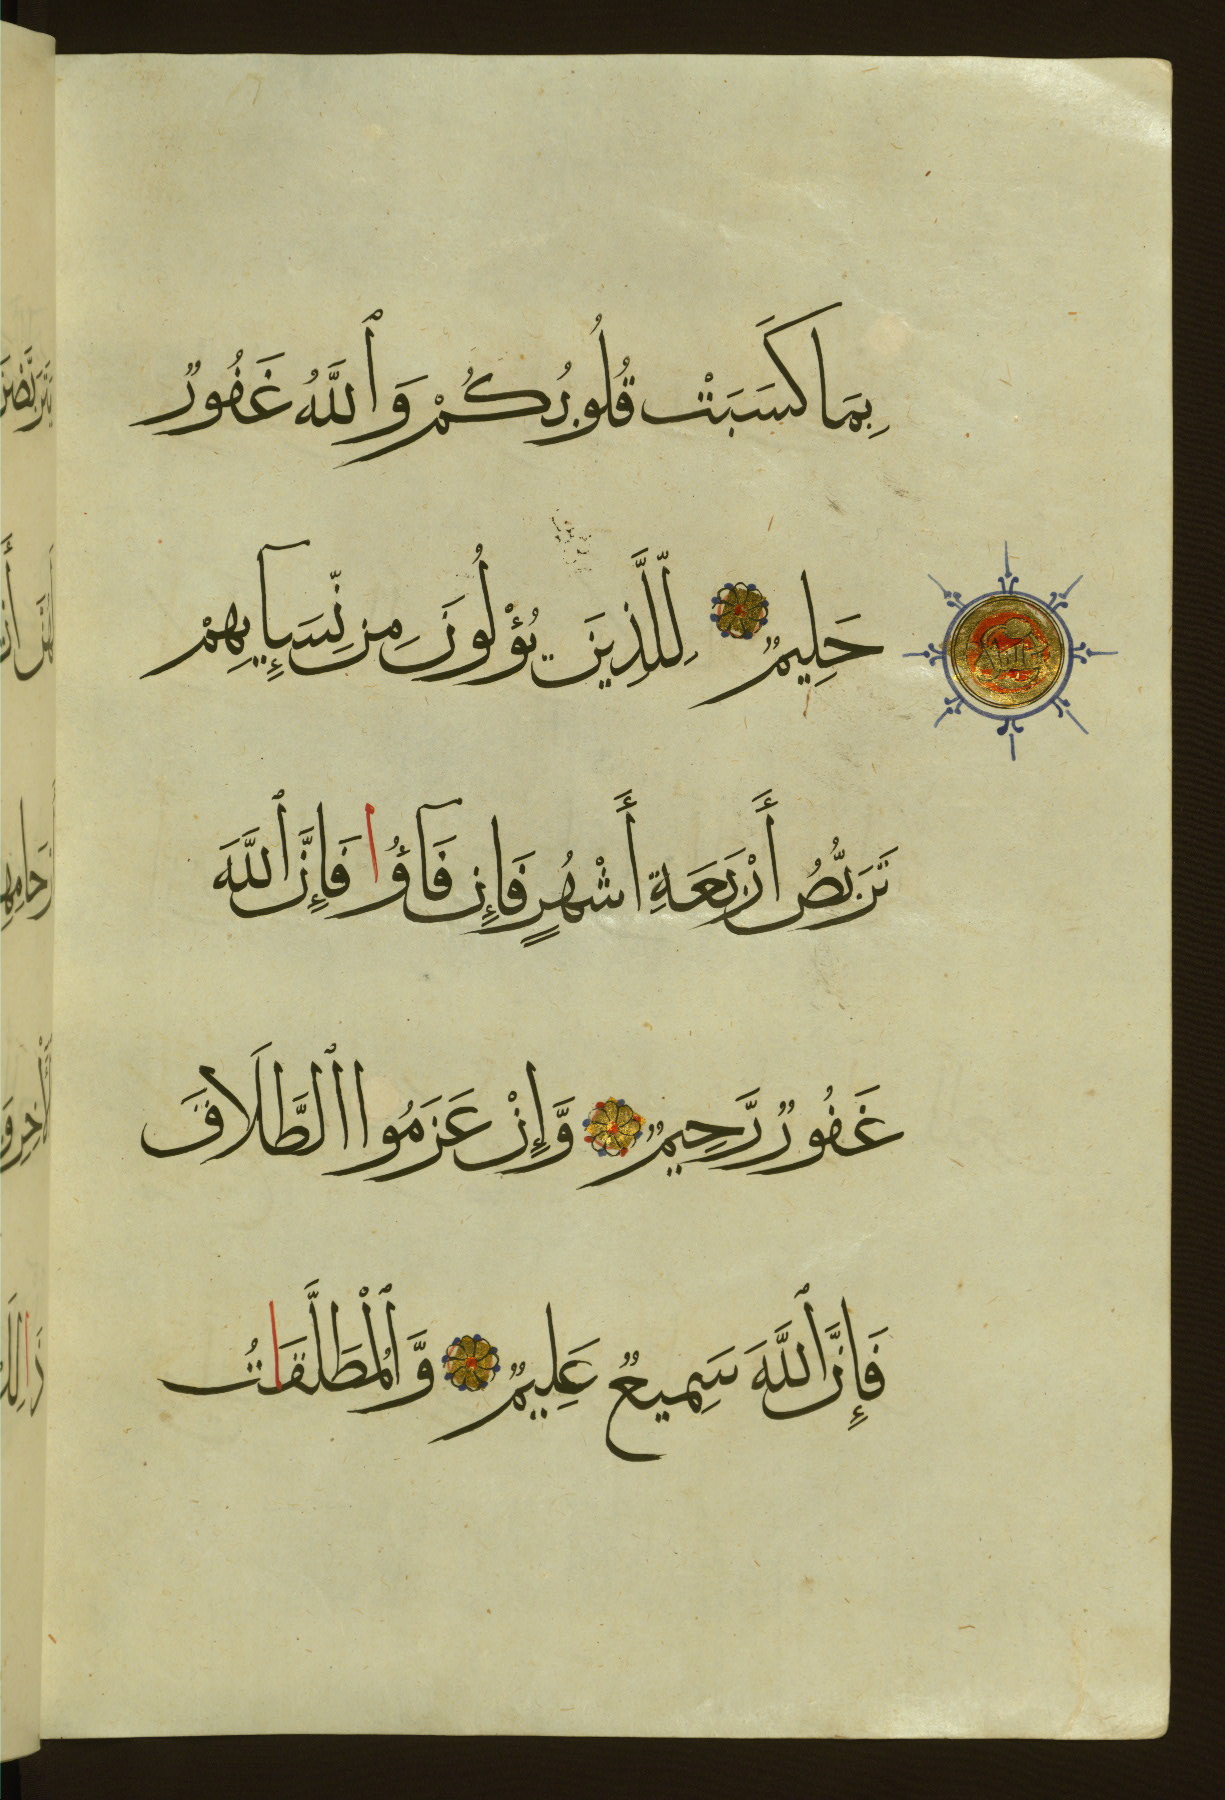 بِمَا كَسَبَتْ قُلُوبُكُمْ وَٱللَّهُ غَفُورٌ
حَلِيمٌ لِلَّذِينَ يُؤْلُونَ مِن نِّسَآئِهِمْ
تَرَبُّصُ أَرْبَعَةِ أَشْهُرٍ فَإِن فَآؤُا فَإِنَّ ٱللَّهَ
غَفُورٌ رَّحِيمٌ وَّإِنْ عَزَمُوا ٱلطَّلَاقَ
فَإِنَّ ٱللَّهَ سَمِيعٌ عَلِيمٌ وَّٱلْمُطَلَّقَاتُ